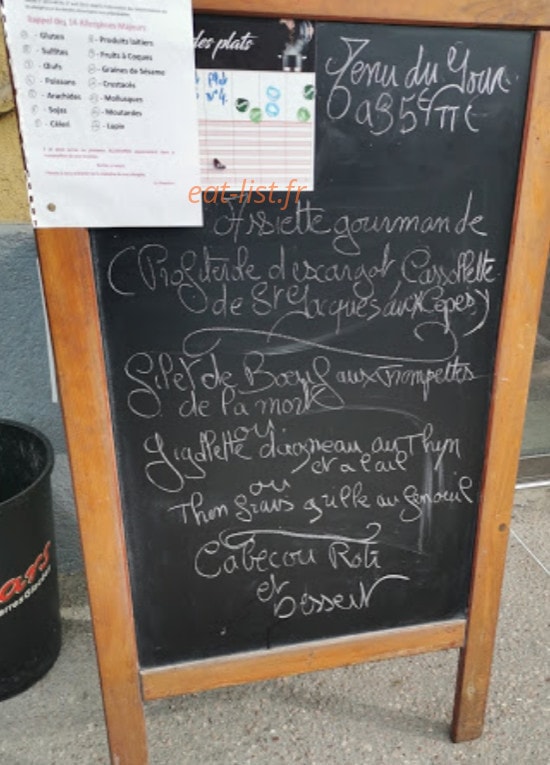 Rappel des 14 Allergènes Majeurs
- Gluten
- Sulfites
- Œufs
- Poissons
- Arachides
- Sojas
- Céleri
- Produits laitiers
- Fruits à Coques
- Graines de Sésame
- Crustacés
- Mollusques
- Moutardes
- Lupin
des plats
Plat
n°4
eat-list.fr
Menu du Jour
a 35€ TTC
Assiette gourmande
(Profiterole d'escargot, Cassolette
de St Jacques aux Cèpes)
Filet de Boeuf aux trompettes
de la mort
ou
Gigolette d'agneau au Thym
et a l'ail
ou
Thon Frais grillé au Fenouil
Cabecou Roti
et
Dessert
ars